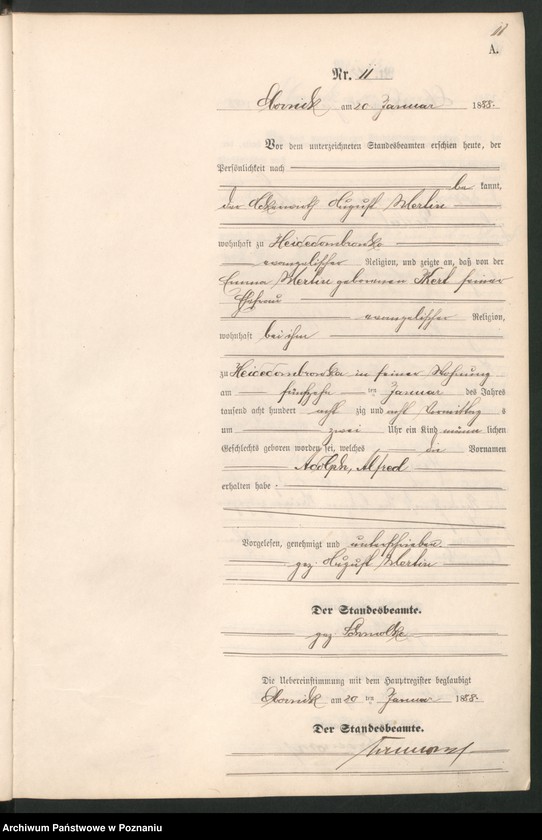 11
A.
Nr. 11
am 20 Januar 1888.
Vor dem unterzeichneten Standesbeamten erschien heute, der
Persönlichkeit nach
be kannt,
der August Merlin
wohnhaft zu Heidedombrowka
evangelischer Religion, und zeigte an, daß von der
Emma Merlin geborenen Kert seiner
Ehefrau
evangelischer Religion,
wohnhaft bei ihm
zu Heidedombrowka in seiner Wohnung
am fünfzehn ten Januar des Jahres
tausend acht hundert acht zig und acht Vormittag s
um zwei Uhr ein Kind männ lichen
Geschlechts geboren worden sei, welches die Vornamen
Adolph, Alfred
erhalten habe.
Vorgelesen, genehmigt und unterschrieben.
gez. August Merlin
Der Standesbeamte.
gez.
Die Uebereinstimmung mit dem Hauptregister beglaubigt
am 20 ten Januar 1888.
Der Standesbeamte.
Archiwum Państwowe w Poznaniu